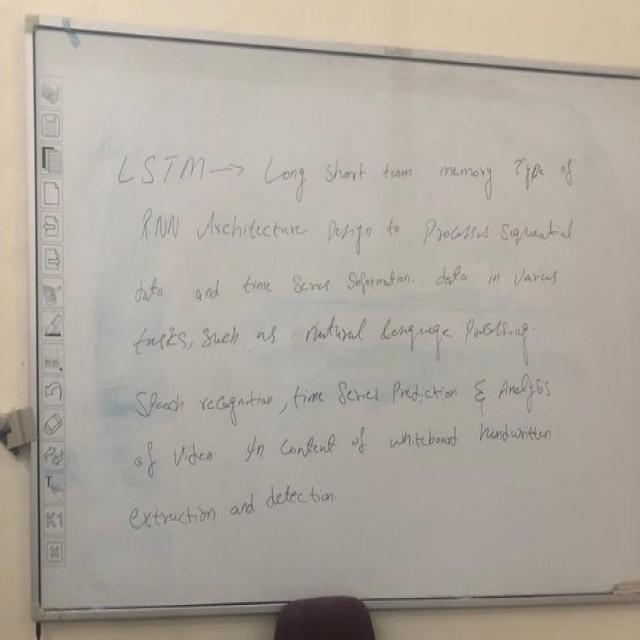 LSTM → Long short term memory Type of
RNN Architecture Design to Processes sequential
data and time series Information. data in various
tasks, such as Natural language Processing.
Speach recognition, time series Prediction & Analysis
of Video In content of whiteboard handwritten
extruction and detection